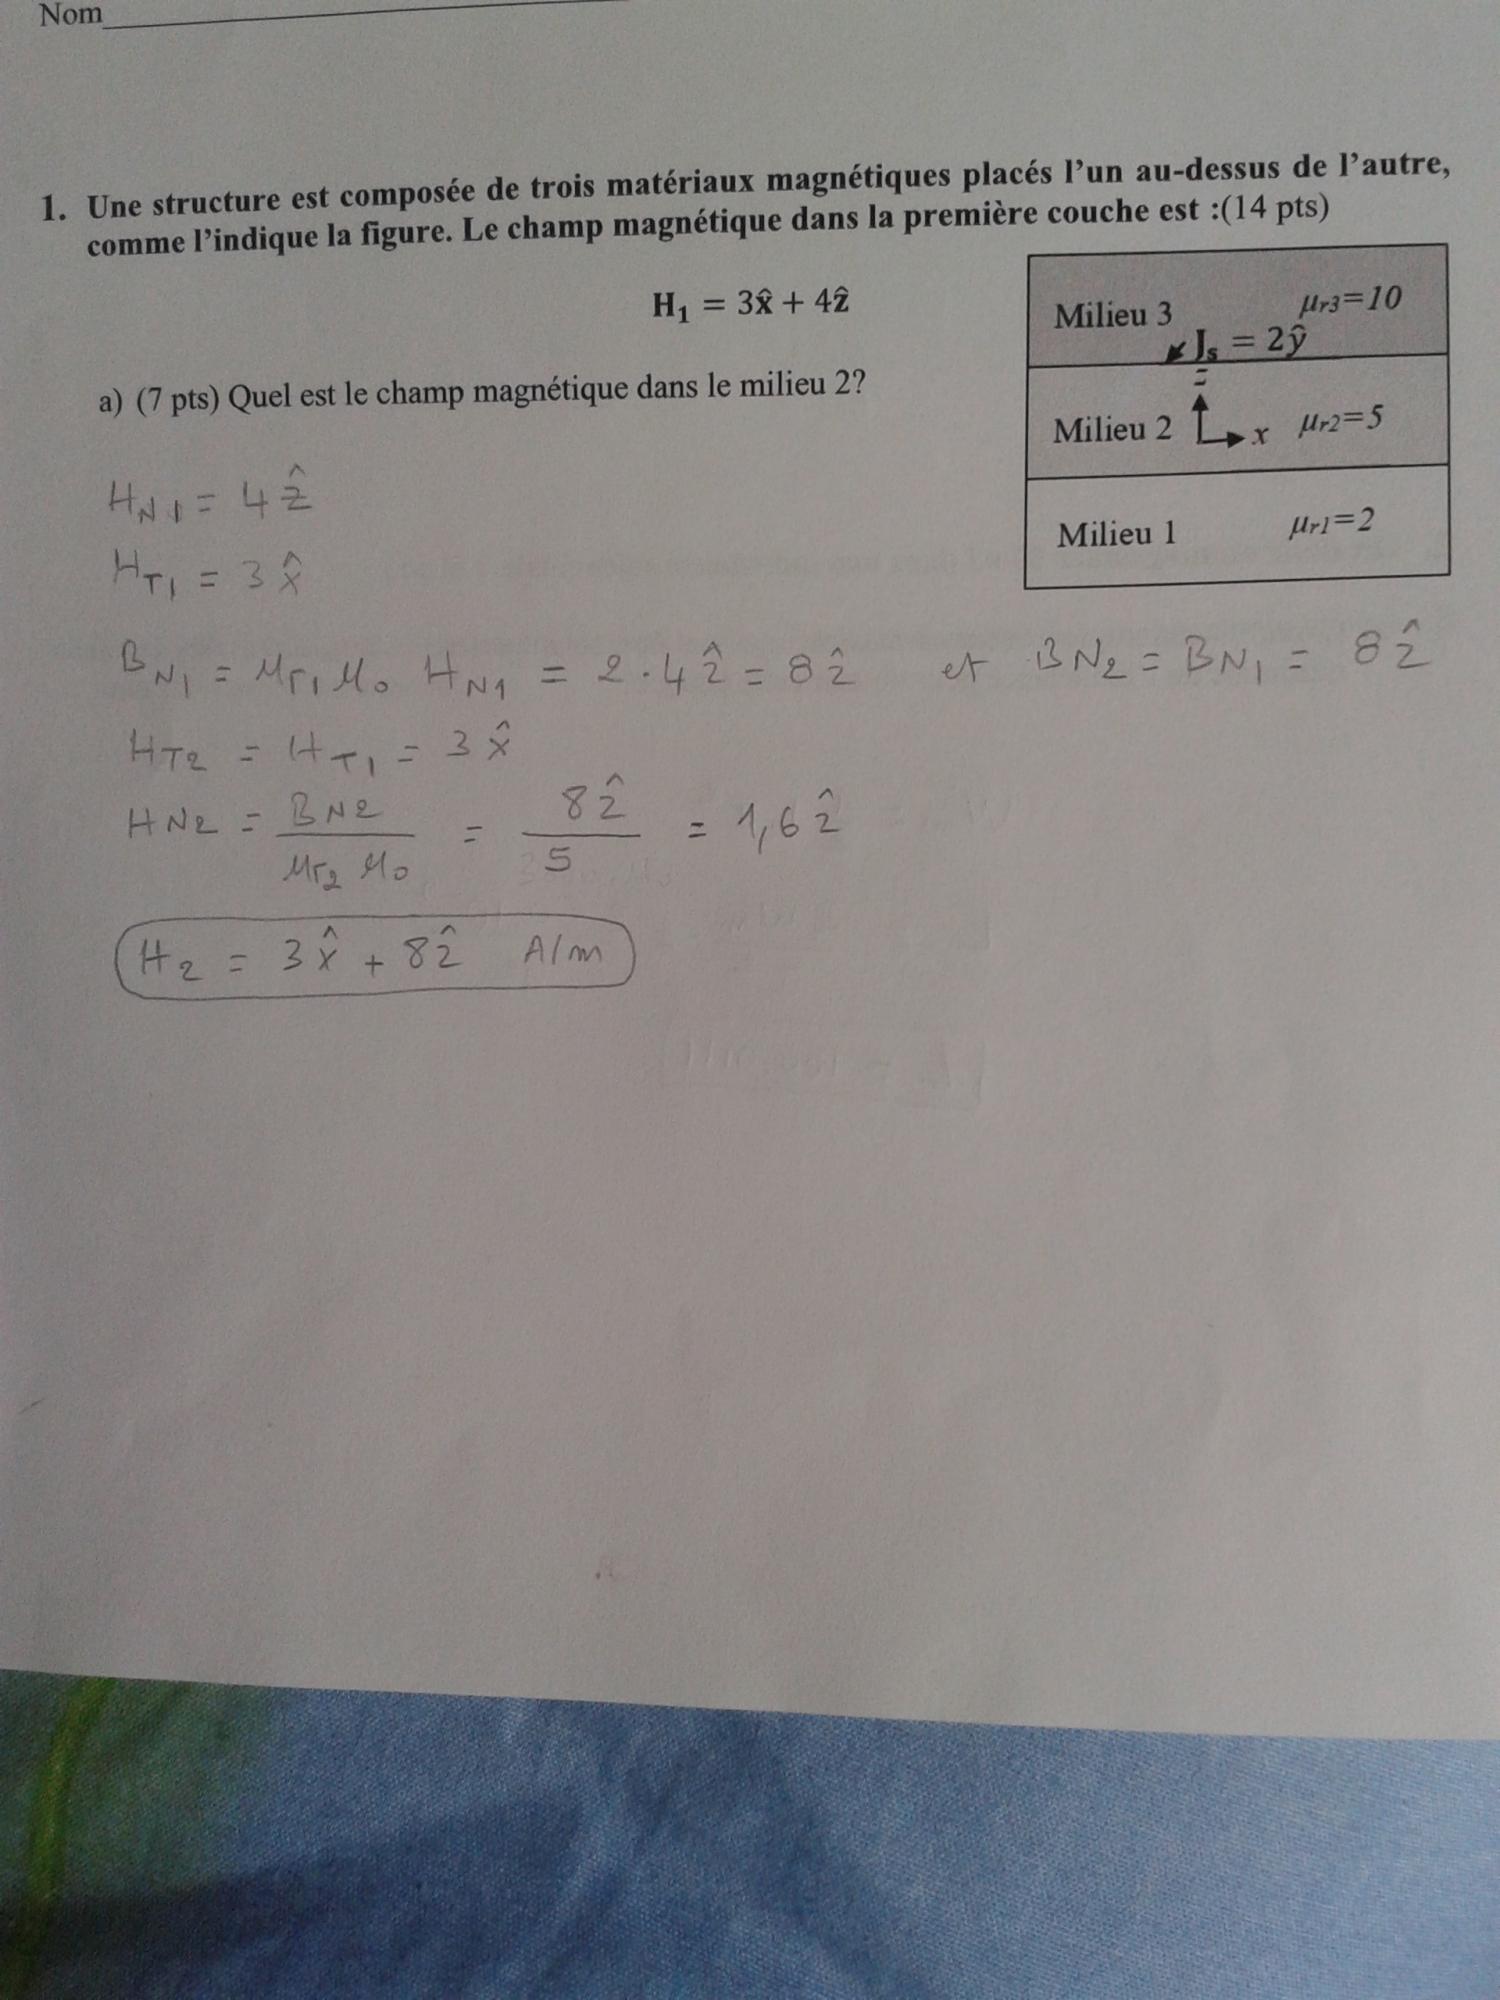 Nom
1. Une structure est composée de trois matériaux magnétiques placés l'un au-dessus de l'autre,
comme l'indique la figure. Le champ magnétique dans la première couche est :(14 pts)
H₁ = 3x̂ + 4ẑ
Milieu 3 μr3=10
Js = 2ŷ
z
Milieu 2 x μr2=5
Milieu 1 μr1=2
a) (7 pts) Quel est le champ magnétique dans le milieu 2?
HN1 = 4ẑ
HT1 = 3x̂
BN1 = μr1 μ0 HN1 = 2·4ẑ = 8ẑ et BN2 = BN1 = 8ẑ
HT2 = HT1 = 3x̂
HN2 = BN2 / μr2 μ0 = 8ẑ / 5 = 1,6ẑ
H2 = 3x̂ + 8ẑ A/m